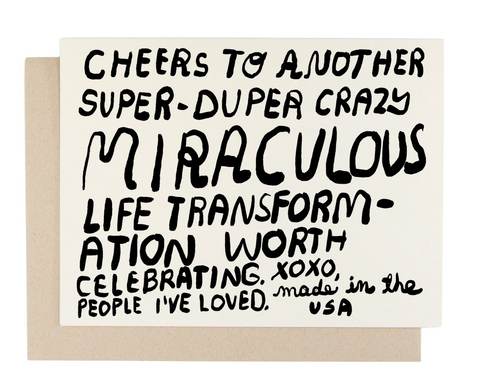 CHEERS TO ANOTHER
SUPER-DUPER CRAZY
MIRACULOUS
LIFE TRANSFORM-
ATION WORTH
CELEBRATING. XOXO,
PEOPLE I'VE LOVED.
made in the
USA